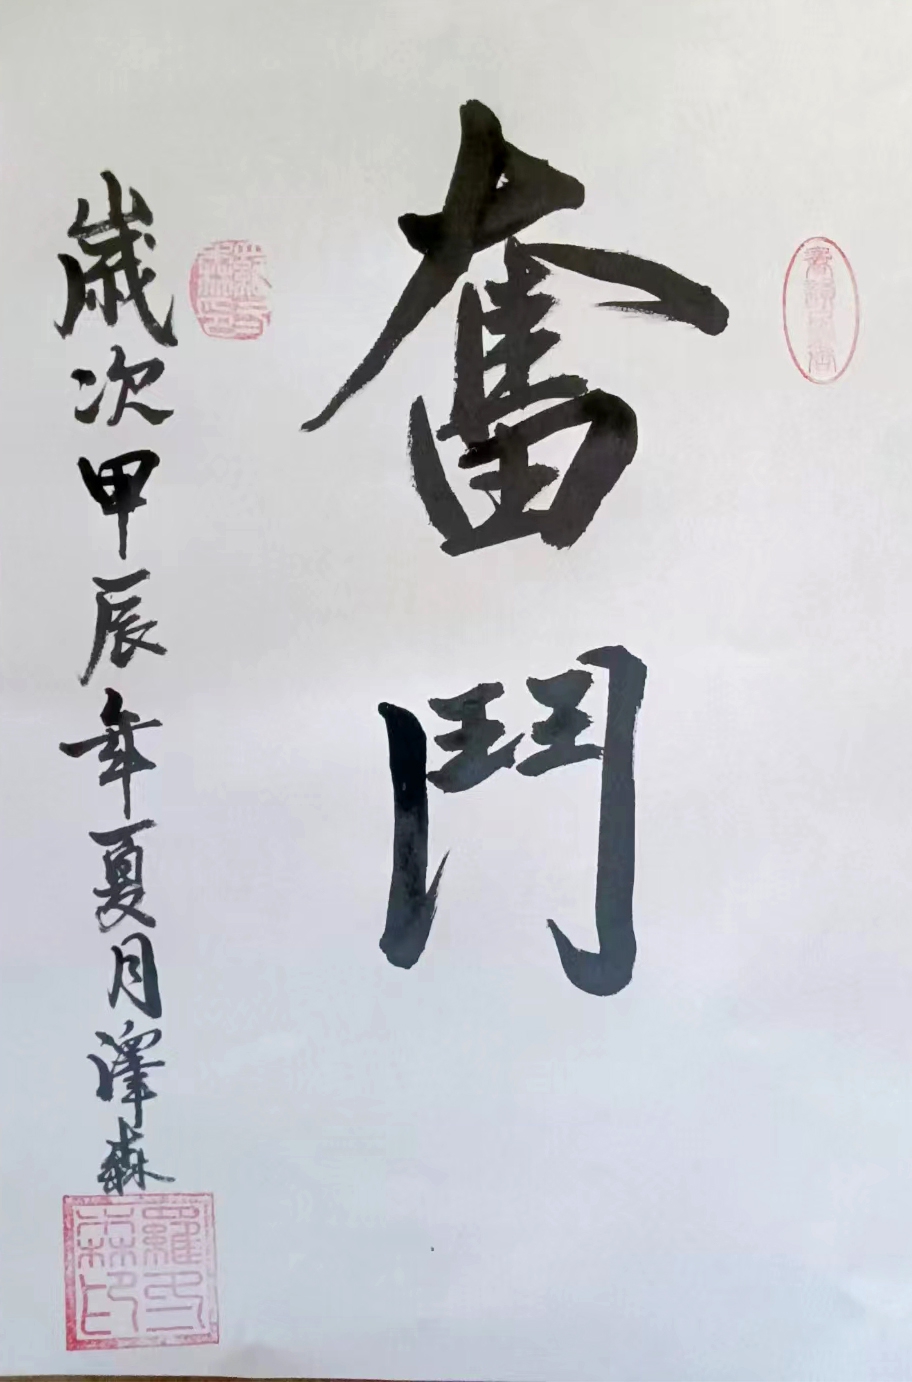 奮鬥
歲次甲辰年夏月澤森